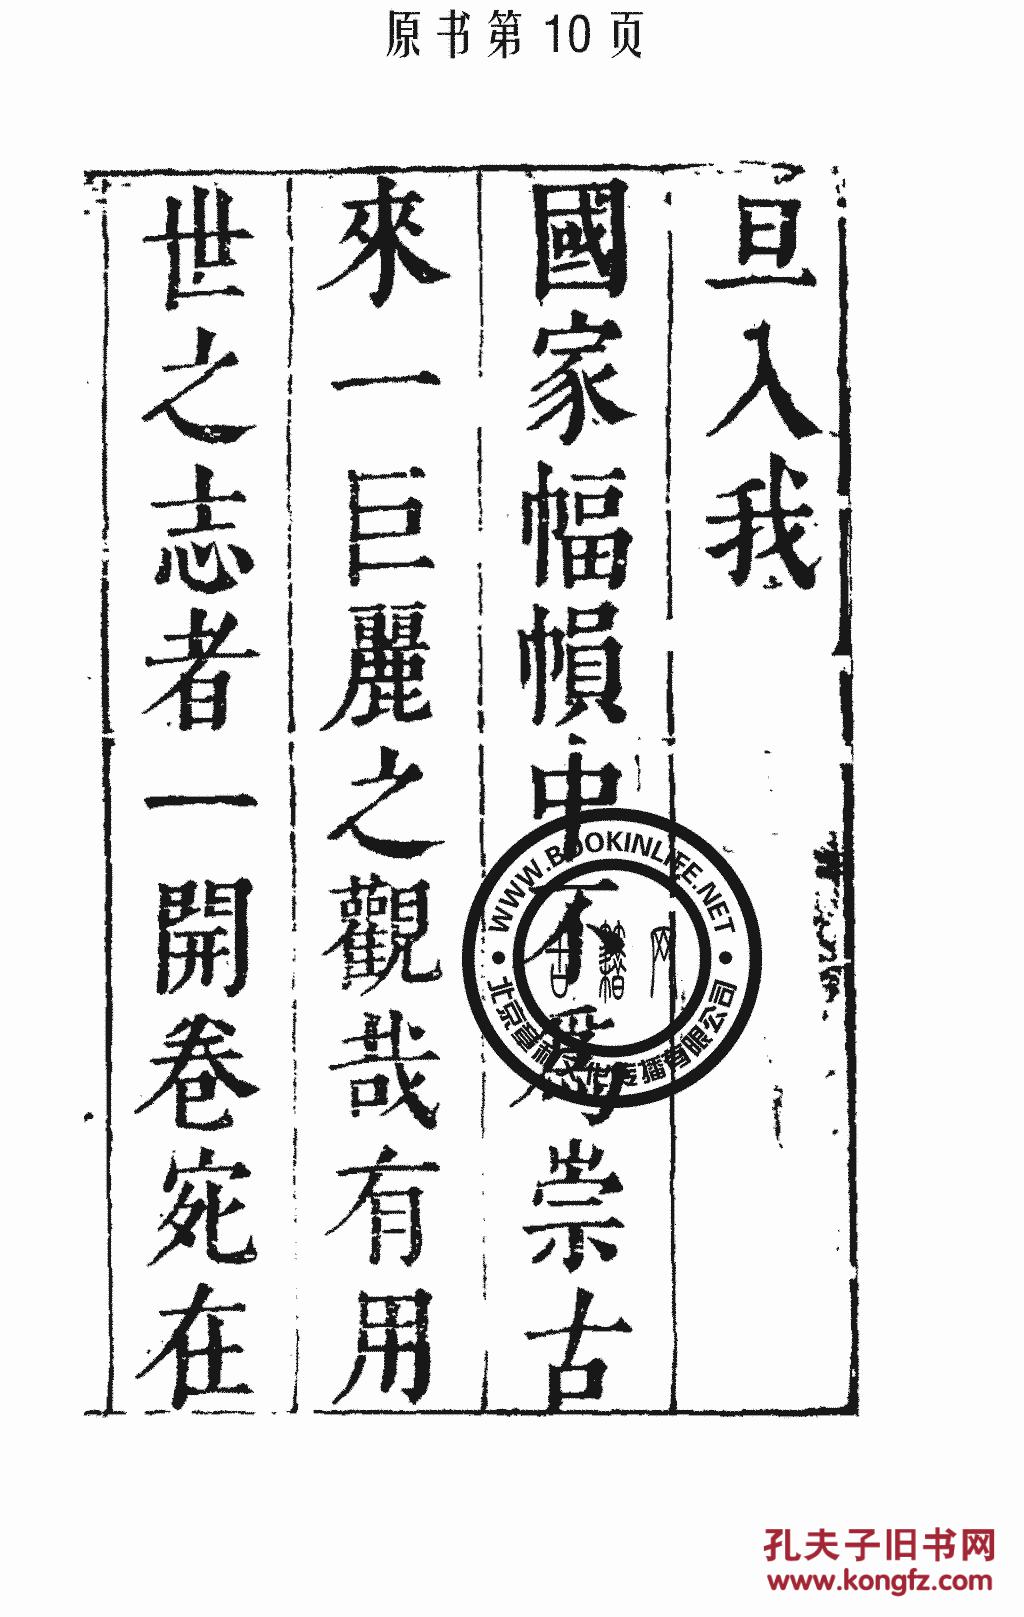 原书第10页
亘入我
國家幅幀中不爲崇古
來一巨麗之觀哉有用
世之志者一開卷宛在
WWW.BOOKINLIFE.NET
北京章和文化传播有限公司
孔夫子旧书网
www.kongfz.com